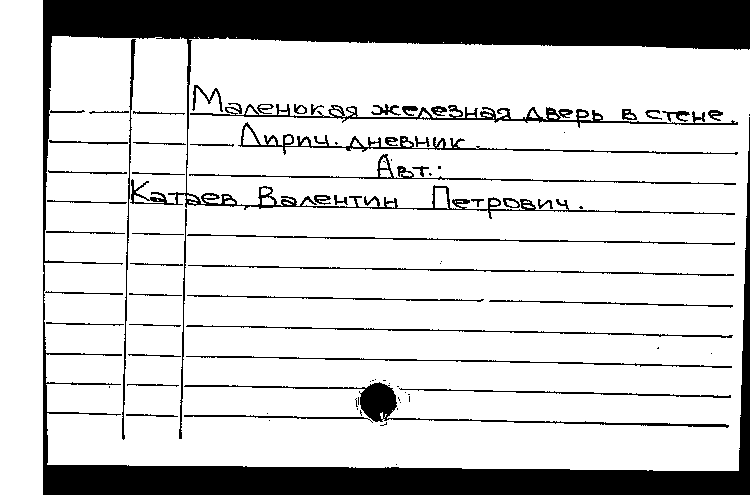 Маленькая железная дверь в стене.
Лирич. дневник.
Авт.:
Катаев, Валентин Петрович.